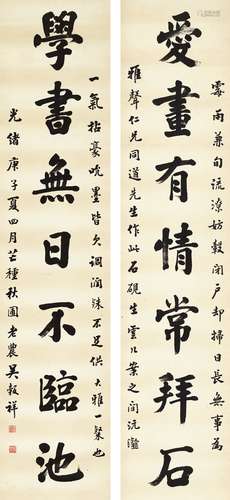 愛畫有情常拜石
霪雨兼旬流潦妨轂閉戶却掃日長無事為
雅聲仁兄同道先生作此石硯生雲几案之間沆瀣
學書無日不臨池
一氣拈豪吮墨皆久調潤殊不足供大雅一粲也
光緒庚子夏四月芒種秋圃老農吳穀祥